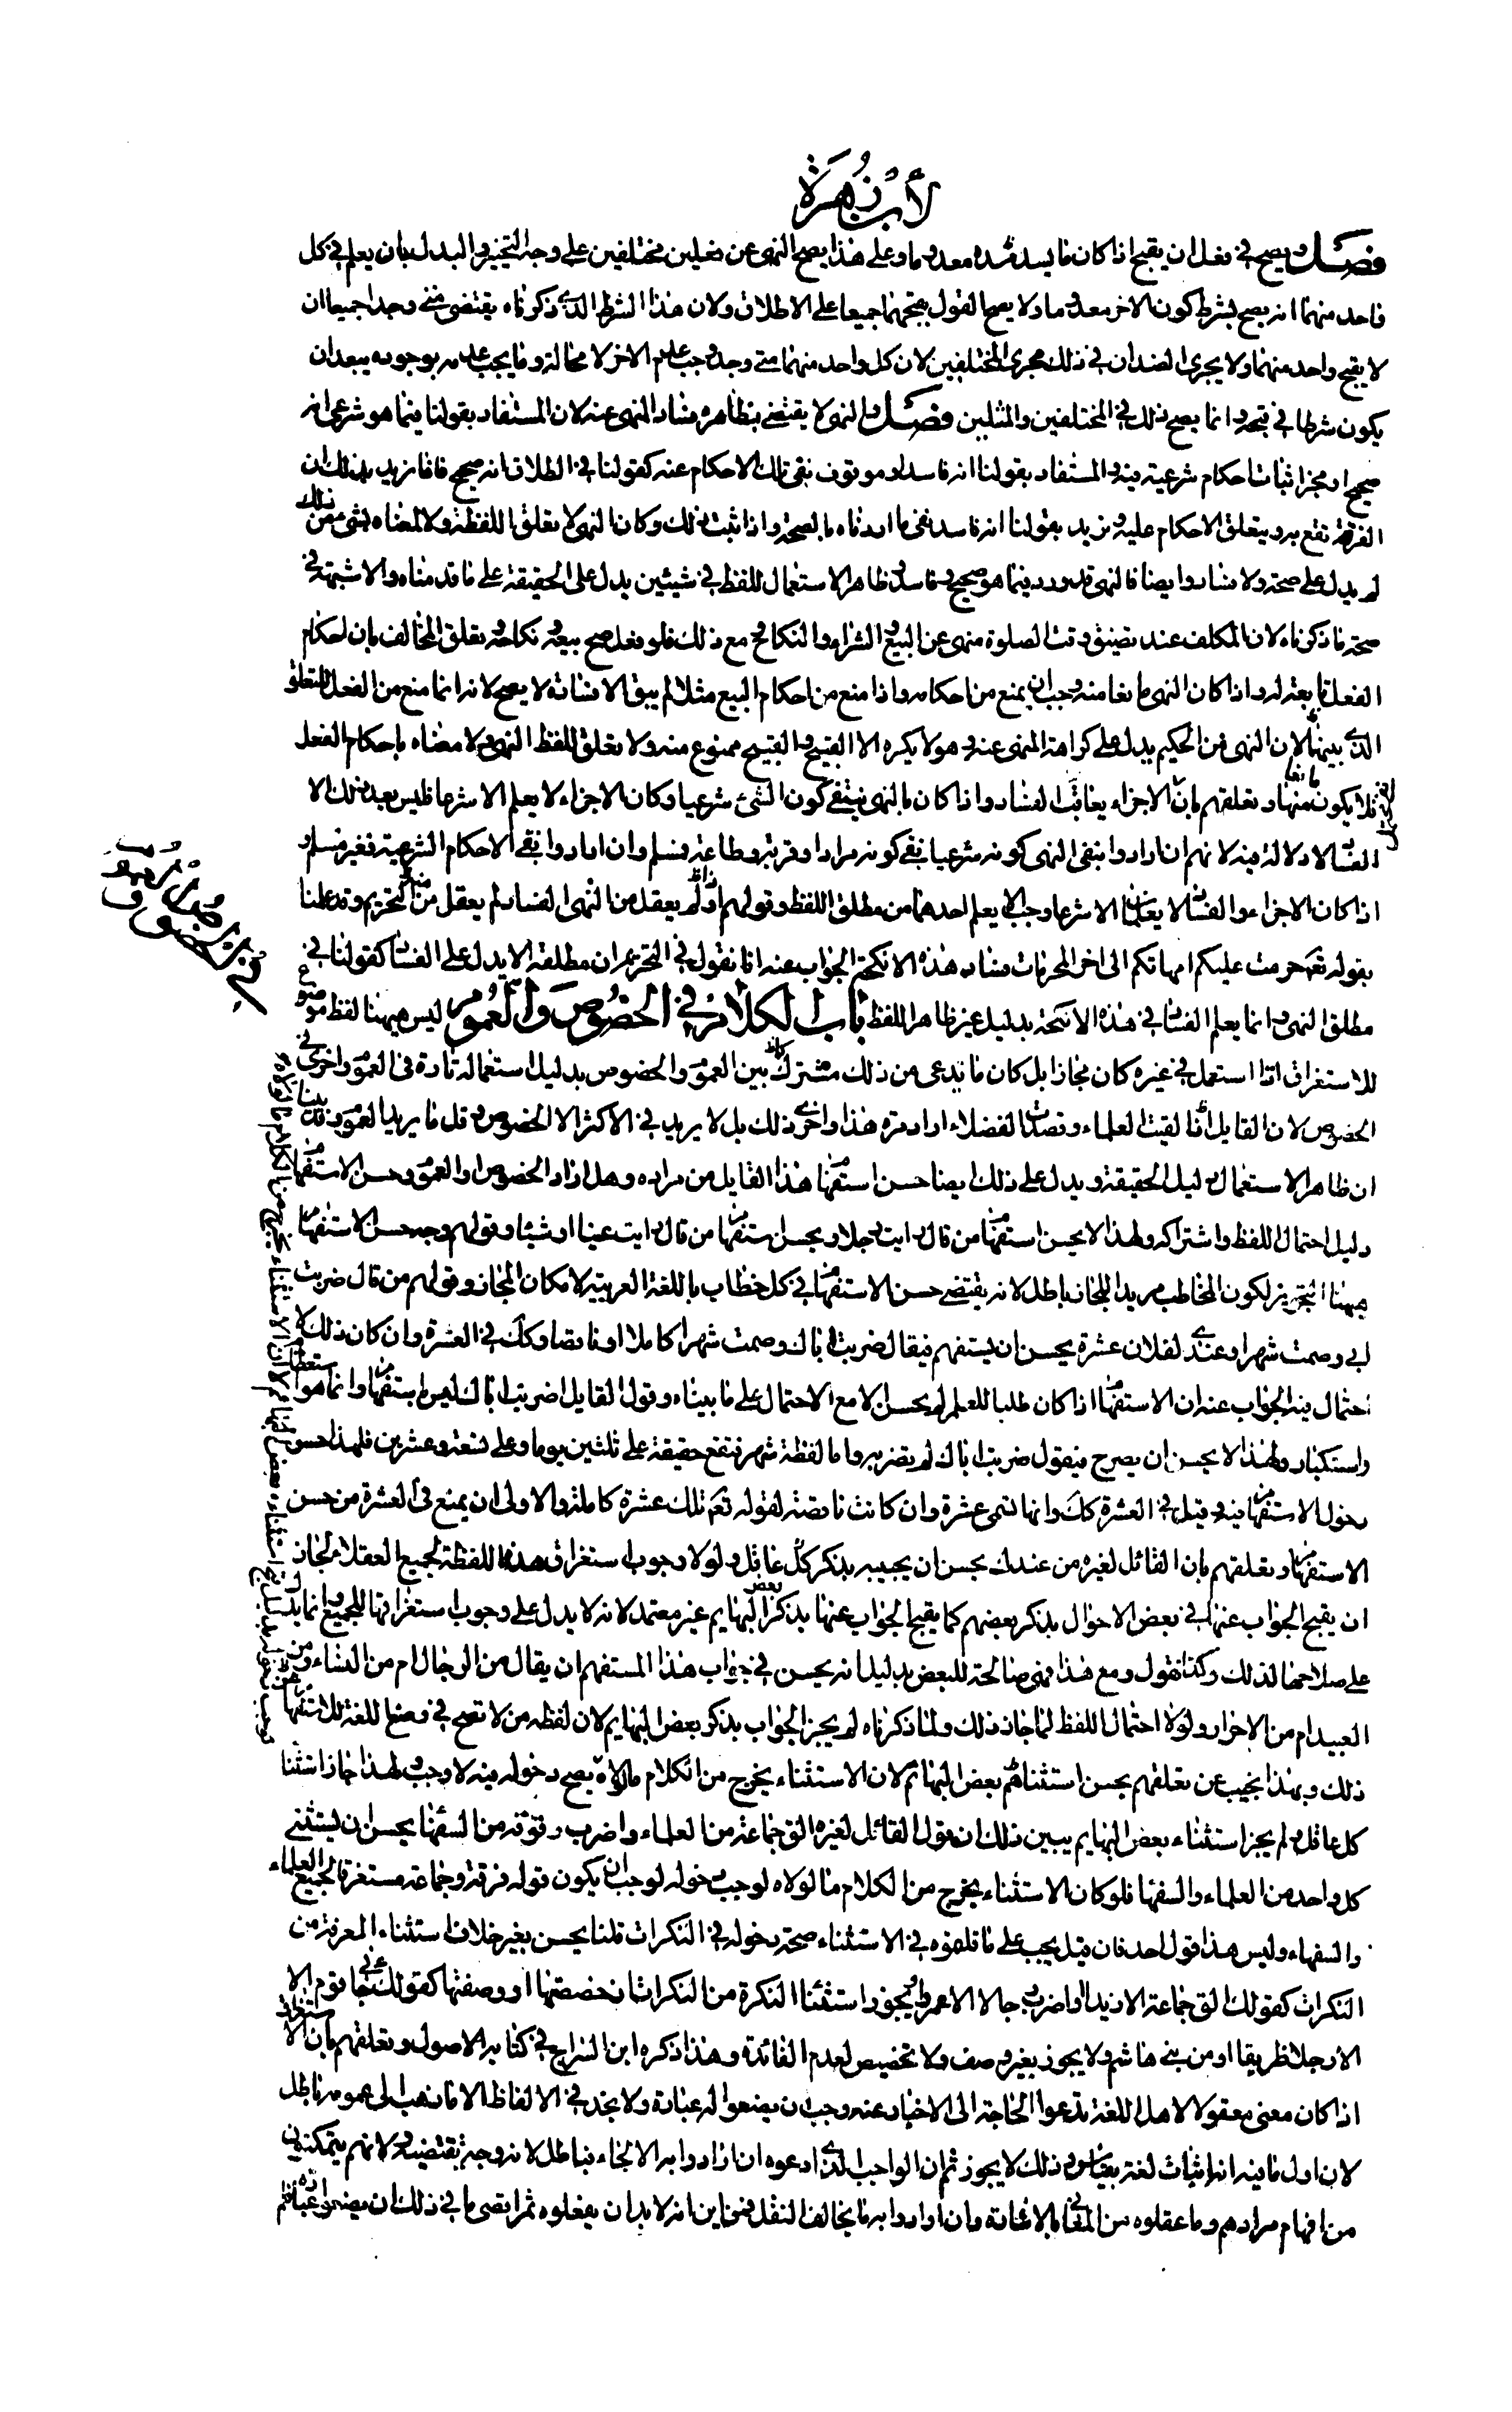 لابن زهرة
فصل ويصح في فعل ان يقبح اذا كان ما يسد مسده معدوما وعلى هذا يصح النهى عن فعلين مختلفين على وجه التخيير والبدل بان يعلم في كل
واحد منهما انه يصح بشرط كون الاخر معدوما ولا يصح القول بقبحهما جميعا على الاطلاق ولان هذا الشرط الذى ذكرناه يقتضى متى وجدا جميعا ان
لا يقبح واحد منهما ولا يجرى الضدان في ذلك مجرى المختلفين لان كل واحد منهما متى وجد وجب عدم الاخر لا محالة وما يجب عدمه بوجوده يبعد ان
يكون شرطا في قبحه وانما يصح ذلك في المختلفين والمثلين فصل والنهى لا يقتضى بظاهره فساد المنهى عنه لان المستفاد بقولنا فيما هو شرعى انه
صحيح او مجز اثبات احكام شرعية فيه والمستفاد بقولنا انه فاسد او موقوف نفى تلك الاحكام عنه كقولنا في الطلاق انه صحيح فانا نريد بذلك ان
الفرقة تقع به ويتعلق الاحكام عليه ونريد بقولنا انه فاسد نفى ما اردناه بالصحة واذا ثبت ذلك وكان النهى لا تعلق للفظه ولا لمعناه بشئ من ذلك
لم يدل على صحة ولا فساد وايضا فالنهى قد ورد فيما هو صحيح وفاسد وظاهر الاستعمال للفظ في شيئين يدل على الحقيقة على ما قدمناه والاشبهة في
صحة ما ذكرناه لان المكلف عند تضيق وقت الصلوة منهى عن البيع والشراء والنكاح ومع ذلك فلو فعل صح بيعه ونكاحه وتعلق المخالف بان احكام
الفعل تابعة له واذا كان النهى مانعا منه وجب ان يمنع من احكامه واذا منع من احكام البيع مثلا لم يبق الا فساده لا يصح لانه انما منع من الفعل للتعلق
الذى بينهما لان النهى من الحكيم يدل على كراهة المنهى عنه وهو لا يكره الا القبيح والقبيح ممنوع منه ولا تعلق للفظ النهى ولا معناه باحكام الفعل
فلا يكون مانعا منها وتعلقهم بان الاجزاء يعاقب الفساد واذا كان بالنهى ينتفى كون الشئ شرعيا وكان الاجزاء لا يعلم الا شرعا فليس بعد ذلك الا
الفساد لا دلالة فيه لانهم ان ارادوا بنفى النهى كونه شرعيا نفى كونه مرادا وقربة وطاعة فمسلم وان ارادوا نفى الاحكام الشرعية فغير مسلم و
اذا كان الاجزاء والفساد لا يعلمان الا شرعا وجب الا يعلم احدهما من مطلق اللفظ وقولهم لو لم يعقل من النهى الفساد لم يعقل من التحريم وقد علمنا
بقوله تعالى حرمت عليكم امهاتكم الى اخر المحرمات فساد هذه الانكحة الجواب عنه انا نقول في التحريم ان مطلقه لا يدل على الفساد كقولنا في
مطلق النهى وانما يعلم الفساد في هذه الانكحة بدليل غير ظاهر اللفظ باب الكلام في الخصوص والعموم ليس هيهنا لفظ موضوع
للاستغراق اذا استعمل في غيره كان مجازا بل كان ما يدعى من ذلك مشترك بين العموم والخصوص بدليل استعماله تارة في العموم واخرى في
الخصوص لان القايل اذا قال لقيت العلماء وقصدت الفضلاء اراد مرة هذا واخرى ذلك بل لا يريد في الاكثر الا الخصوص وقل ما يريد العموم وقد بينا
ان ظاهر الاستعمال دليل الحقيقة ويدل على ذلك ايضا حسن استفهام هذا القايل من مراده وهل اراد الخصوص او العموم وحسن الاستفهام
دليل احتمال اللفظ واشتراكه ولهذا لا يحسن استفهام من قال رايت رجلا ويحسن استفهام من قال رايت عينا او شيئا وقولهم وجه حسن الاستفهام
هيهنا التجويز لكون المخاطب مريدا للمجاز باطل لانه يقتضى حسن الاستفهام في كل خطاب باللغة العربية لامكان المجاز وقولهم من قال ضربت
ابى وصمت شهرا وعندى لفلان عشرة يحسن ان يستفهم فيقال ضربت اباك وصمت شهرا كاملا او ناقصا وكك في العشرة وان كان ذلك لا
احتمال فيه الجواب عنه ان الاستفهام اذا كان طلبا للعلم لم يحسن الا مع الاحتمال على ما بيناه وقول القايل اضربت اباك ليس باستفهام وانما هو استعظام
واستكبار ولهذا لا يحسن ان يصرح فيقول ضربت اباك لم تضربه واما لفظة شهر فتقع حقيقة على ثلثين يوما وعلى تسعة وعشرين فلهذا حسن
دخول الاستفهام فيه وقيل في العشرة كك وانها تسمى عشرة وان كانت ناقصة لقوله تعالى تلك عشرة كاملة والاولى ان يمنع في العشرة من حسن
الاستفهام وتعلقهم بان القائل لغيره من عندك يحسن ان يجيبه بذكر كل عاقل ولولا وجوب استغراق هذه اللفظة لجميع العقلاء لجاز
ان يقبح الجواب عنها في بعض الاحوال بذكر بعضهم كما يقبح الجواب عنها بذكر بعض البهايم غير معتمد لانه لا يدل على وجوب استغراقها للجميع وانما يدل
على صلاحها لذلك وكذا نقول ومع هذا فهى صالحة للبعض بدليل انه يحسن في جواب هذا المستفهم ان يقال من الرجال ام من النساء ومن
العبيد ام من الاحرار ولولا احتمال اللفظ لما جاز ذلك ولما ذكرناه لم يجز الجواب بذكر بعض البهايم لان لفظه من لا تصح في وضع اللغة للاستفهام
ذلك وبهذا نجيب عن تعلقهم بحسن استثناء بعض البهائم لان الاستثناء يخرج من الكلام ما لولاه يصح دخوله فيه لا وجب ولهذا جاز استثنا
كل عاقل ولم يجز استثناء بعض البهايم يبين ذلك ان قول القائل لغيره الق جماعة من العلماء واضرب فرقة من السفهاء يحسن ان يستثنى
كل واحد من العلماء والسفهاء فلو كان الاستثناء يخرج من الكلام ما لولاه لوجب دخوله لوجب ان يكون قوله فرقة وجماعة مستغرقا لجميع العلماء
والسفهاء وليس هذا قول احد فان قيل يجب على ما قلتموه في الاستثناء صحة دخوله في النكرات قلنا يحسن بغير خلاف استثناء المعرفة من
النكرات كقولك الق جماعة الا زيدا واضرب رجالا الا عمروا ويجوز استثنا النكرة من النكرات ان خصصتها او وصفتها كقولك جاءنى قوم الا
الا رجلا ظريفا او من بنى هاشم ولا يجوز بغير وصف ولا تخصيص لعدم الفائدة وهذا ذكره ابن السراج في كتابه الاصول وتعلقهم بان الاستغراق
اذا كان معنى معقولا لاهل اللغة تدعوا الحاجة الى الاخبار عنه وجب ان يضعوا له عبارة ولا نجد في الالفاظ الا ما نذهب الى عمومه باطل
لان اول ما فيه انه اثبات لغة بقياس وذلك لا يجوز ثم ان الواجب الذى ادعوه ان ارادوا به الالجاء فباطل لانه لا وجه يقتضيه ولانهم يتمكنون
من افهام مرادهم وما عقلوه من المعانى بالاشارة وان ارادوا به ما يخالف النقل فمن اين انه لا بد ان يفعلوه ثم اقصى ما في ذلك ان يضعوا عبارة